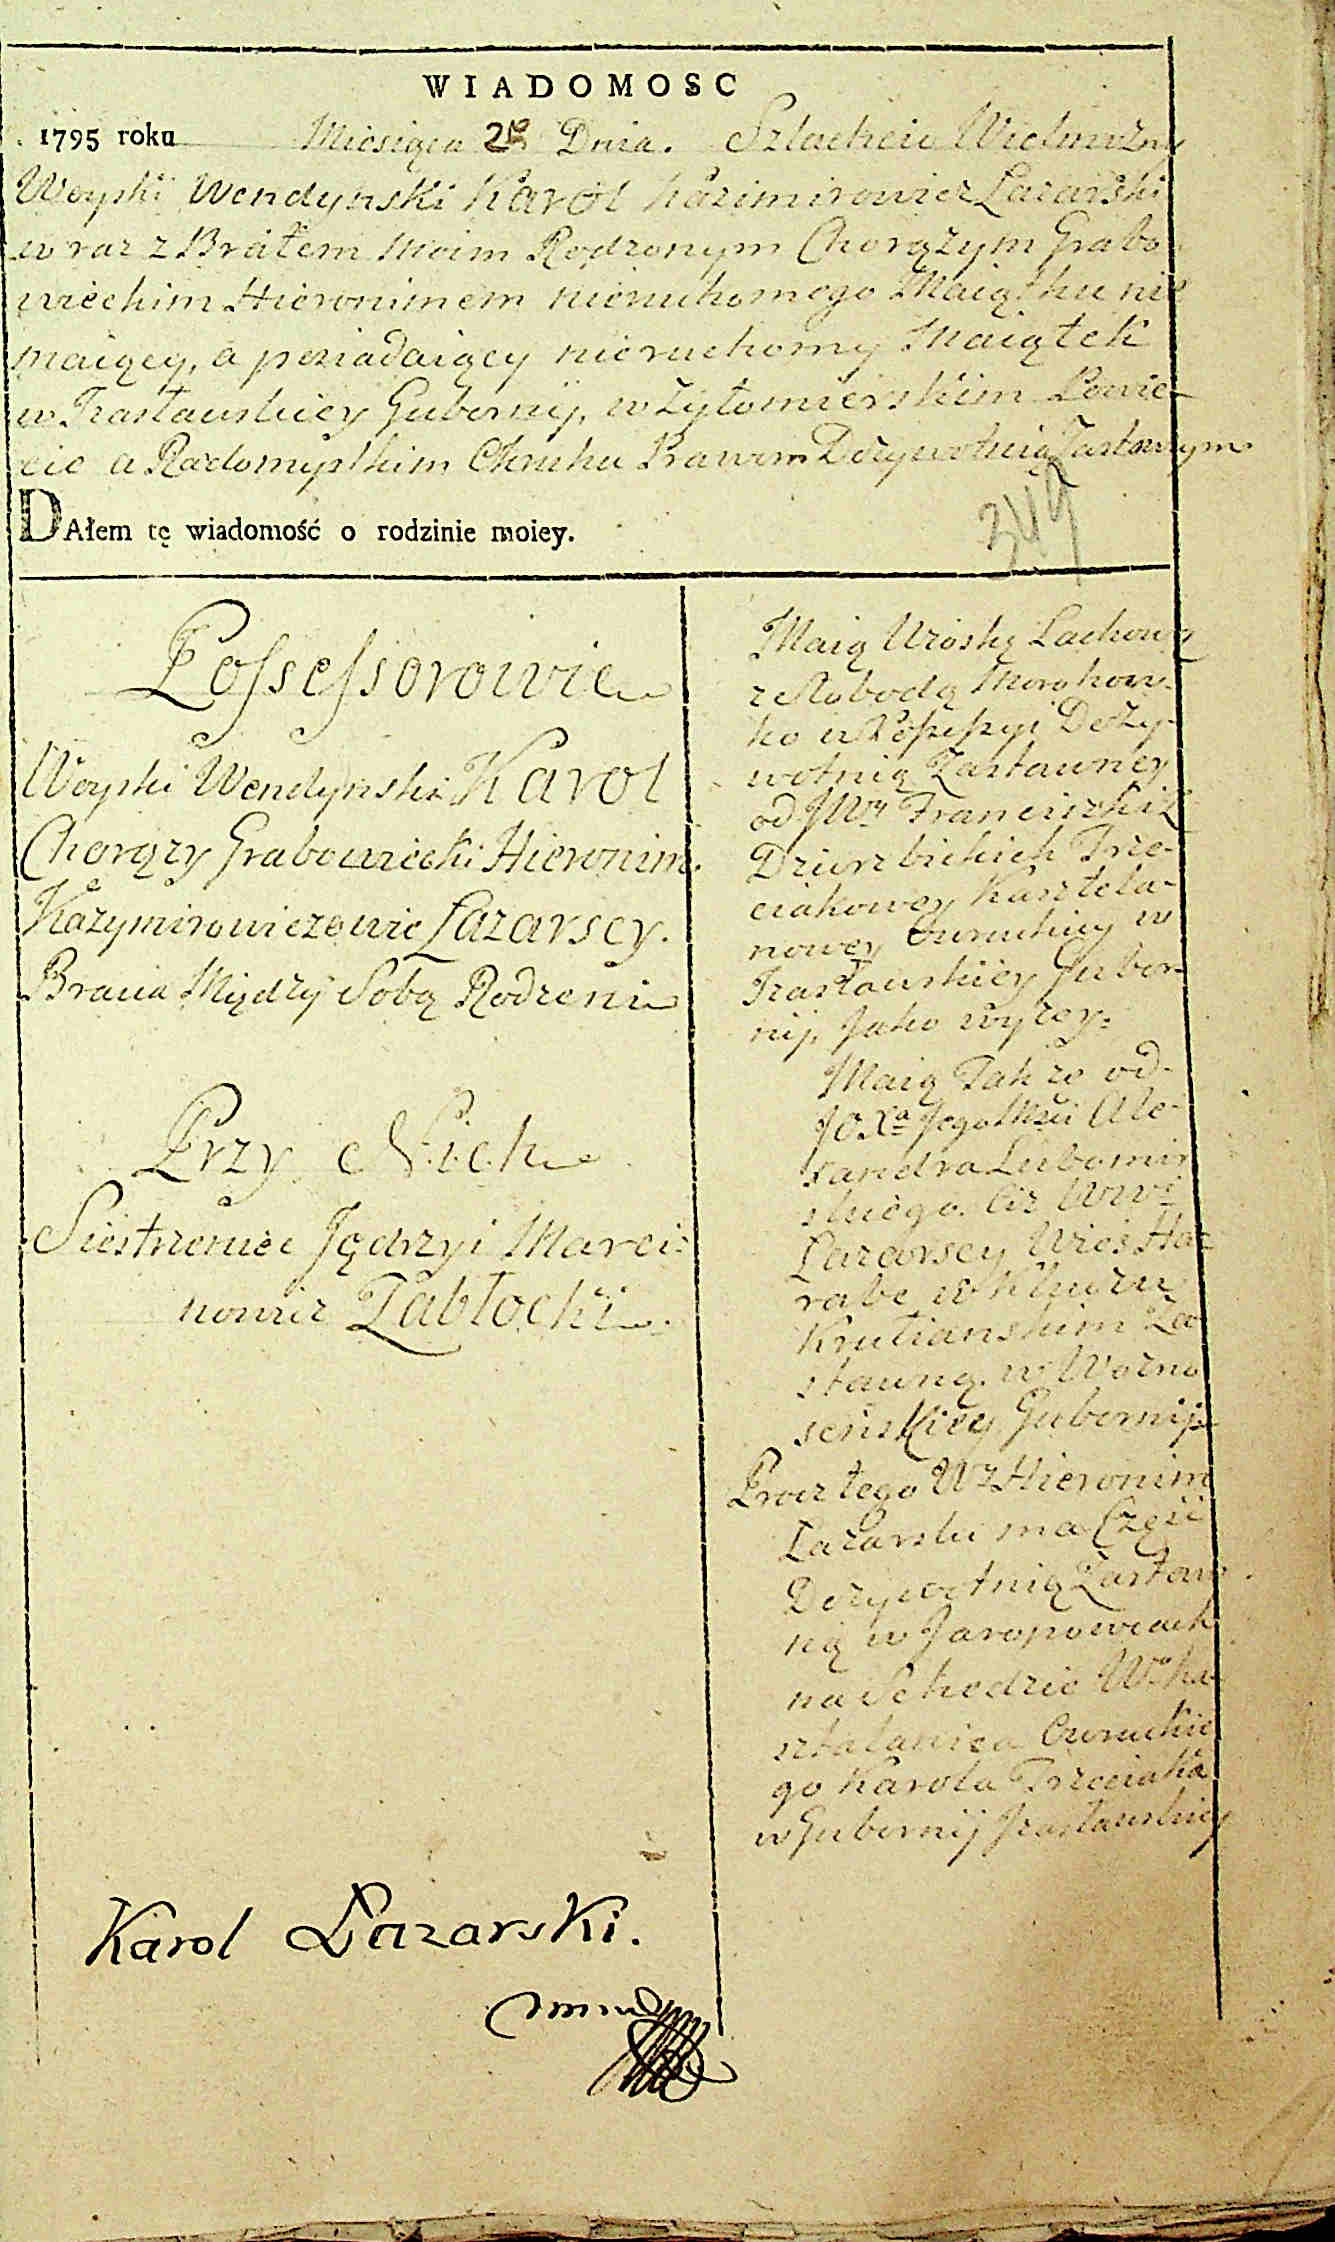 WIADOMOSC
1795 roku Miesiąca Dnia. Szlachcic Wielmożny
Woyski Wendynski Karol Kazimirowicz Lazarski
w raz z Bratem Moim Rodzonym Chorązym Grabo
wieckim Hieronimem nieruchomego Maiątku nie
maiący, a posiadaiący nieruchomy Maiątek
w Izasławskiey Gubernij, w Zytomierskim Powie-
cie a Radomyslkim Okruhu Prawem Dozywotnią Zastawnym
349
DAłem tę wiadomość o rodzinie moiey.
Possessorowie
Woyski Wendynski Karol
Chorązy Grabowiecki Hieronim.
Kazymirowiczowie Lazarscy.
Bracia Między Sobą Rodzeni
Przy Nich
Siestrzeniec Jędrzyi Marci:
nowicz Zabłocki
Karol Lazarski.
Maią Wioskę Lachową
z Słobodą
w Possessyi Dozy-
wotnią Zastawney
od JW Franciszki z
Dzierzbickich Trze-
ciakowey Kasztela-
nowey Owruckiey w
Izasławskiey Guber-
nij, Jako wyzey:
Maią Takze od
JO Xa Jego Mści Ale-
xandra Lubomir
skiego. Ciz
Lazarscy Wieś Ha-
rabę w Kluczu
Krutianskim Za
stawną. w Wozno
senskiey Gubernij
Procz tego W Hieronim
Lazarski ma Część
Dozywotnią Zastaw
ną w Jaropowcach
na Schodzie W Ka
sztelanica Owruckie
go Karola Trzeciaka
w Gubernij Izasławskiey